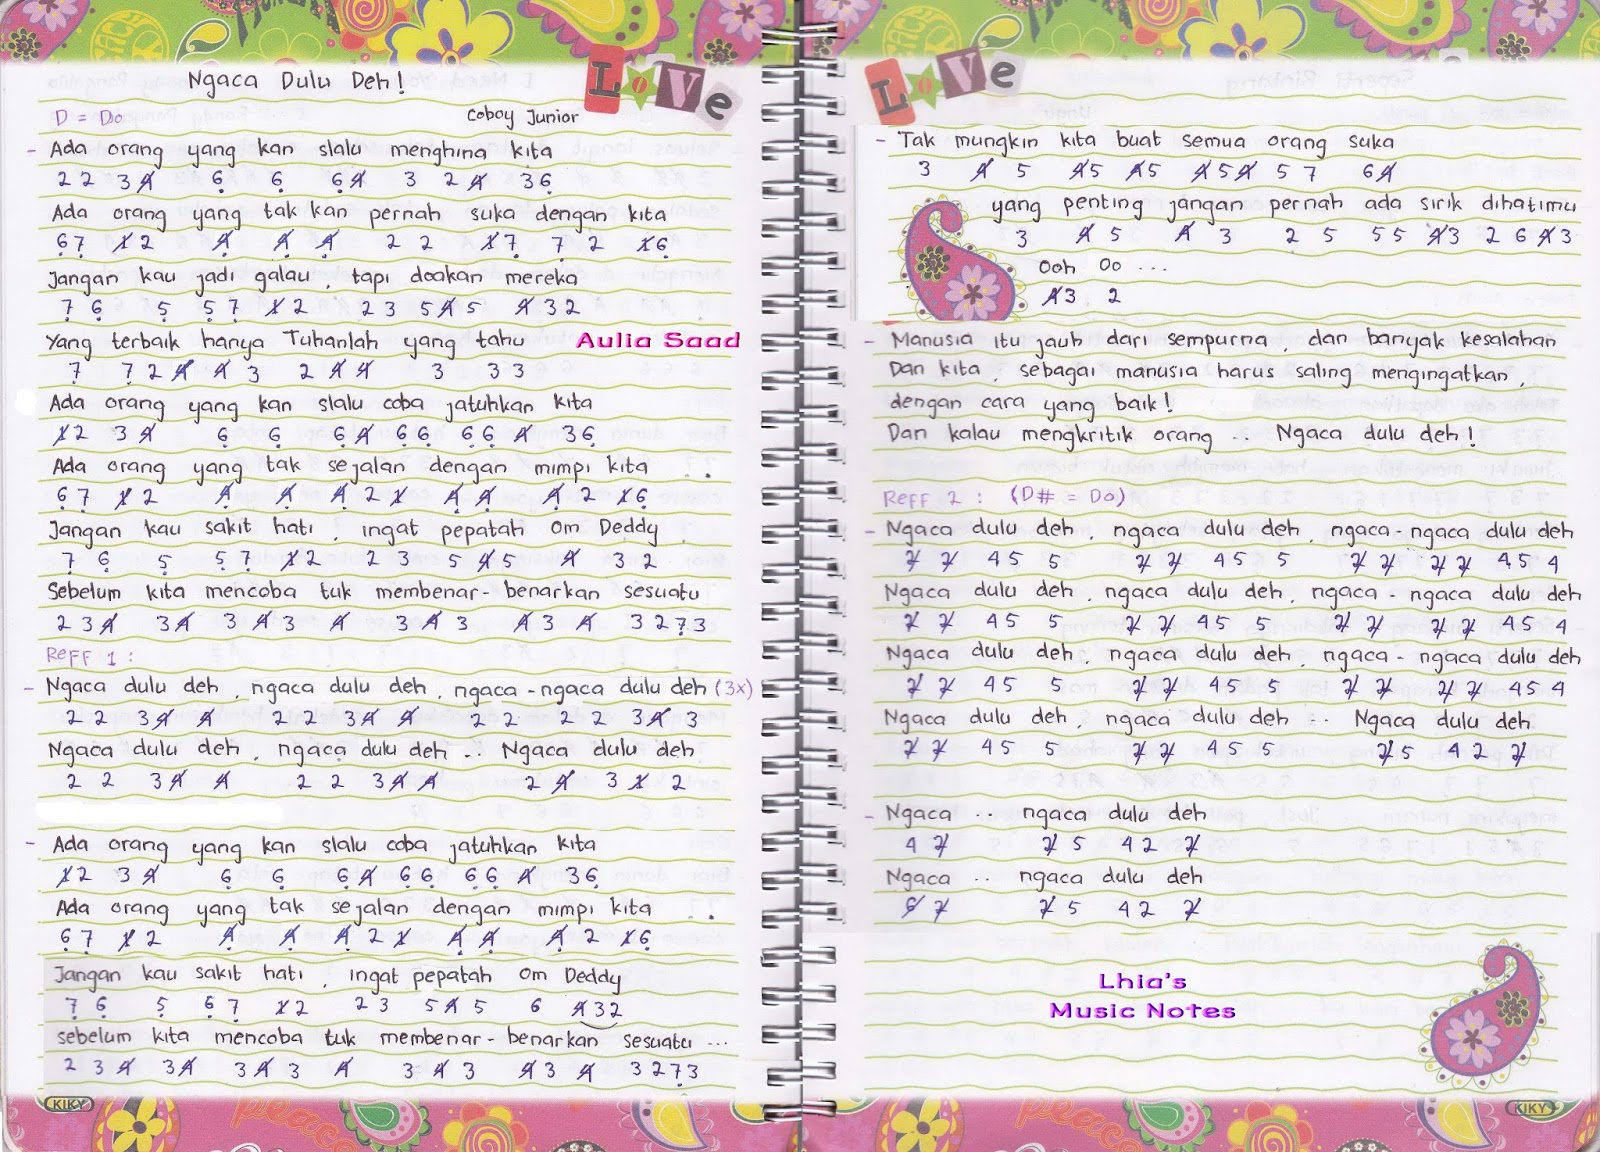 Ngaca Dulu Deh!
LOVE
D = Do
Coboy Junior
- Ada orang yang kan slalu menghina kita
2 2 3 4 6 6 6 4 3 2 4 3 6
Ada orang yang tak kan pernah suka dengan kita
6 7 1 2 4 4 4 2 2 1 7 7 2 1 6
Jangan kau jadi galau, tapi doakan mereka
7 6 5 5 7 1 2 2 3 5 4 5 4 3 2
Yang terbaik hanya Tuhanlah yang tahu
Aulia Saad
7 7 2 4 4 3 2 4 4 3 3 3
Ada orang yang kan slalu coba jatuhkan kita
1 2 3 4 6 6 6 4 6 6 6 6 4 3 6
Ada orang yang tak sejalan dengan mimpi kita ..
6 7 1 2 4 4 4 2 1 4 4 4 2 1 6
Jangan kau sakit hati, ingat pepatah Om Deddy.
7 6 5 5 7 1 2 2 3 5 4 5 4 3 2
Sebelum kita mencoba tuk membenar-benarkan sesuatu
2 3 4 3 4 3 4 3 4 3 4 3 4 3 4 3 2 7 3
Reff 1 :
- Ngaca dulu deh, ngaca dulu deh, ngaca-ngaca dulu deh (3x)
2 2 3 4 4 2 2 3 4 4 2 2 2 2 3 4 3
Ngaca dulu deh, ngaca dulu deh .. Ngaca dulu deh
2 2 3 4 4 2 2 3 4 4 2 4 3 1 2
- Ada orang yang kan slalu coba jatuhkan kita
1 2 3 4 6 6 6 4 6 6 6 6 4 3 6
Ada orang yang tak sejalan dengan mimpi kita ..
6 7 1 2 4 4 4 2 1 4 4 4 2 1 6
Jangan kau sakit hati, ingat pepatah Om Deddy
7 6 5 6 7 1 2 2 3 5 4 5 6 4 3 2
sebelum kita mencoba tuk membenar-benarkan sesuatu ...
2 3 4 3 4 3 4 3 4 3 4 3 4 3 4 3 2 7 3
KIKY
LOVE
- Tak mungkin kita buat semua orang suka
3 4 5 4 5 4 5 4 5 4 5 7 6 4
yang penting jangan pernah ada sirik dihatimu
3 4 5 4 3 2 5 5 5 4 3 2 6 4 3
Ooh Oo ...
4 3 2
- Manusia itu jauh dari sempurna, dan banyak kesalahan
Dan kita, sebagai manusia harus saling mengingatkan,
dengan cara yang baik!
Dan kalau mengkritik orang .. Ngaca dulu deh!
Reff 2 : (D# = Do)
- Ngaca dulu deh, ngaca dulu deh, ngaca-ngaca dulu deh
2 2 4 5 5 2 2 4 5 5 2 2 2 2 4 5 4
Ngaca dulu deh, ngaca dulu deh, ngaca-ngaca dulu deh
2 2 4 5 5 2 2 4 5 5 2 2 2 2 4 5 4
Ngaca dulu deh, ngaca dulu deh, ngaca-ngaca dulu deh
2 2 4 5 5 2 2 4 5 5 2 2 2 2 4 5 4
Ngaca dulu deh, ngaca dulu deh .. Ngaca dulu deh
2 2 4 5 5 2 2 4 5 5 2 5 4 2 2
- Ngaca .. ngaca dulu deh
4 2 2 5 4 2 2
Ngaca .. ngaca dulu deh
6 2 2 5 4 2 2
Lhia's
Music Notes
KIKY